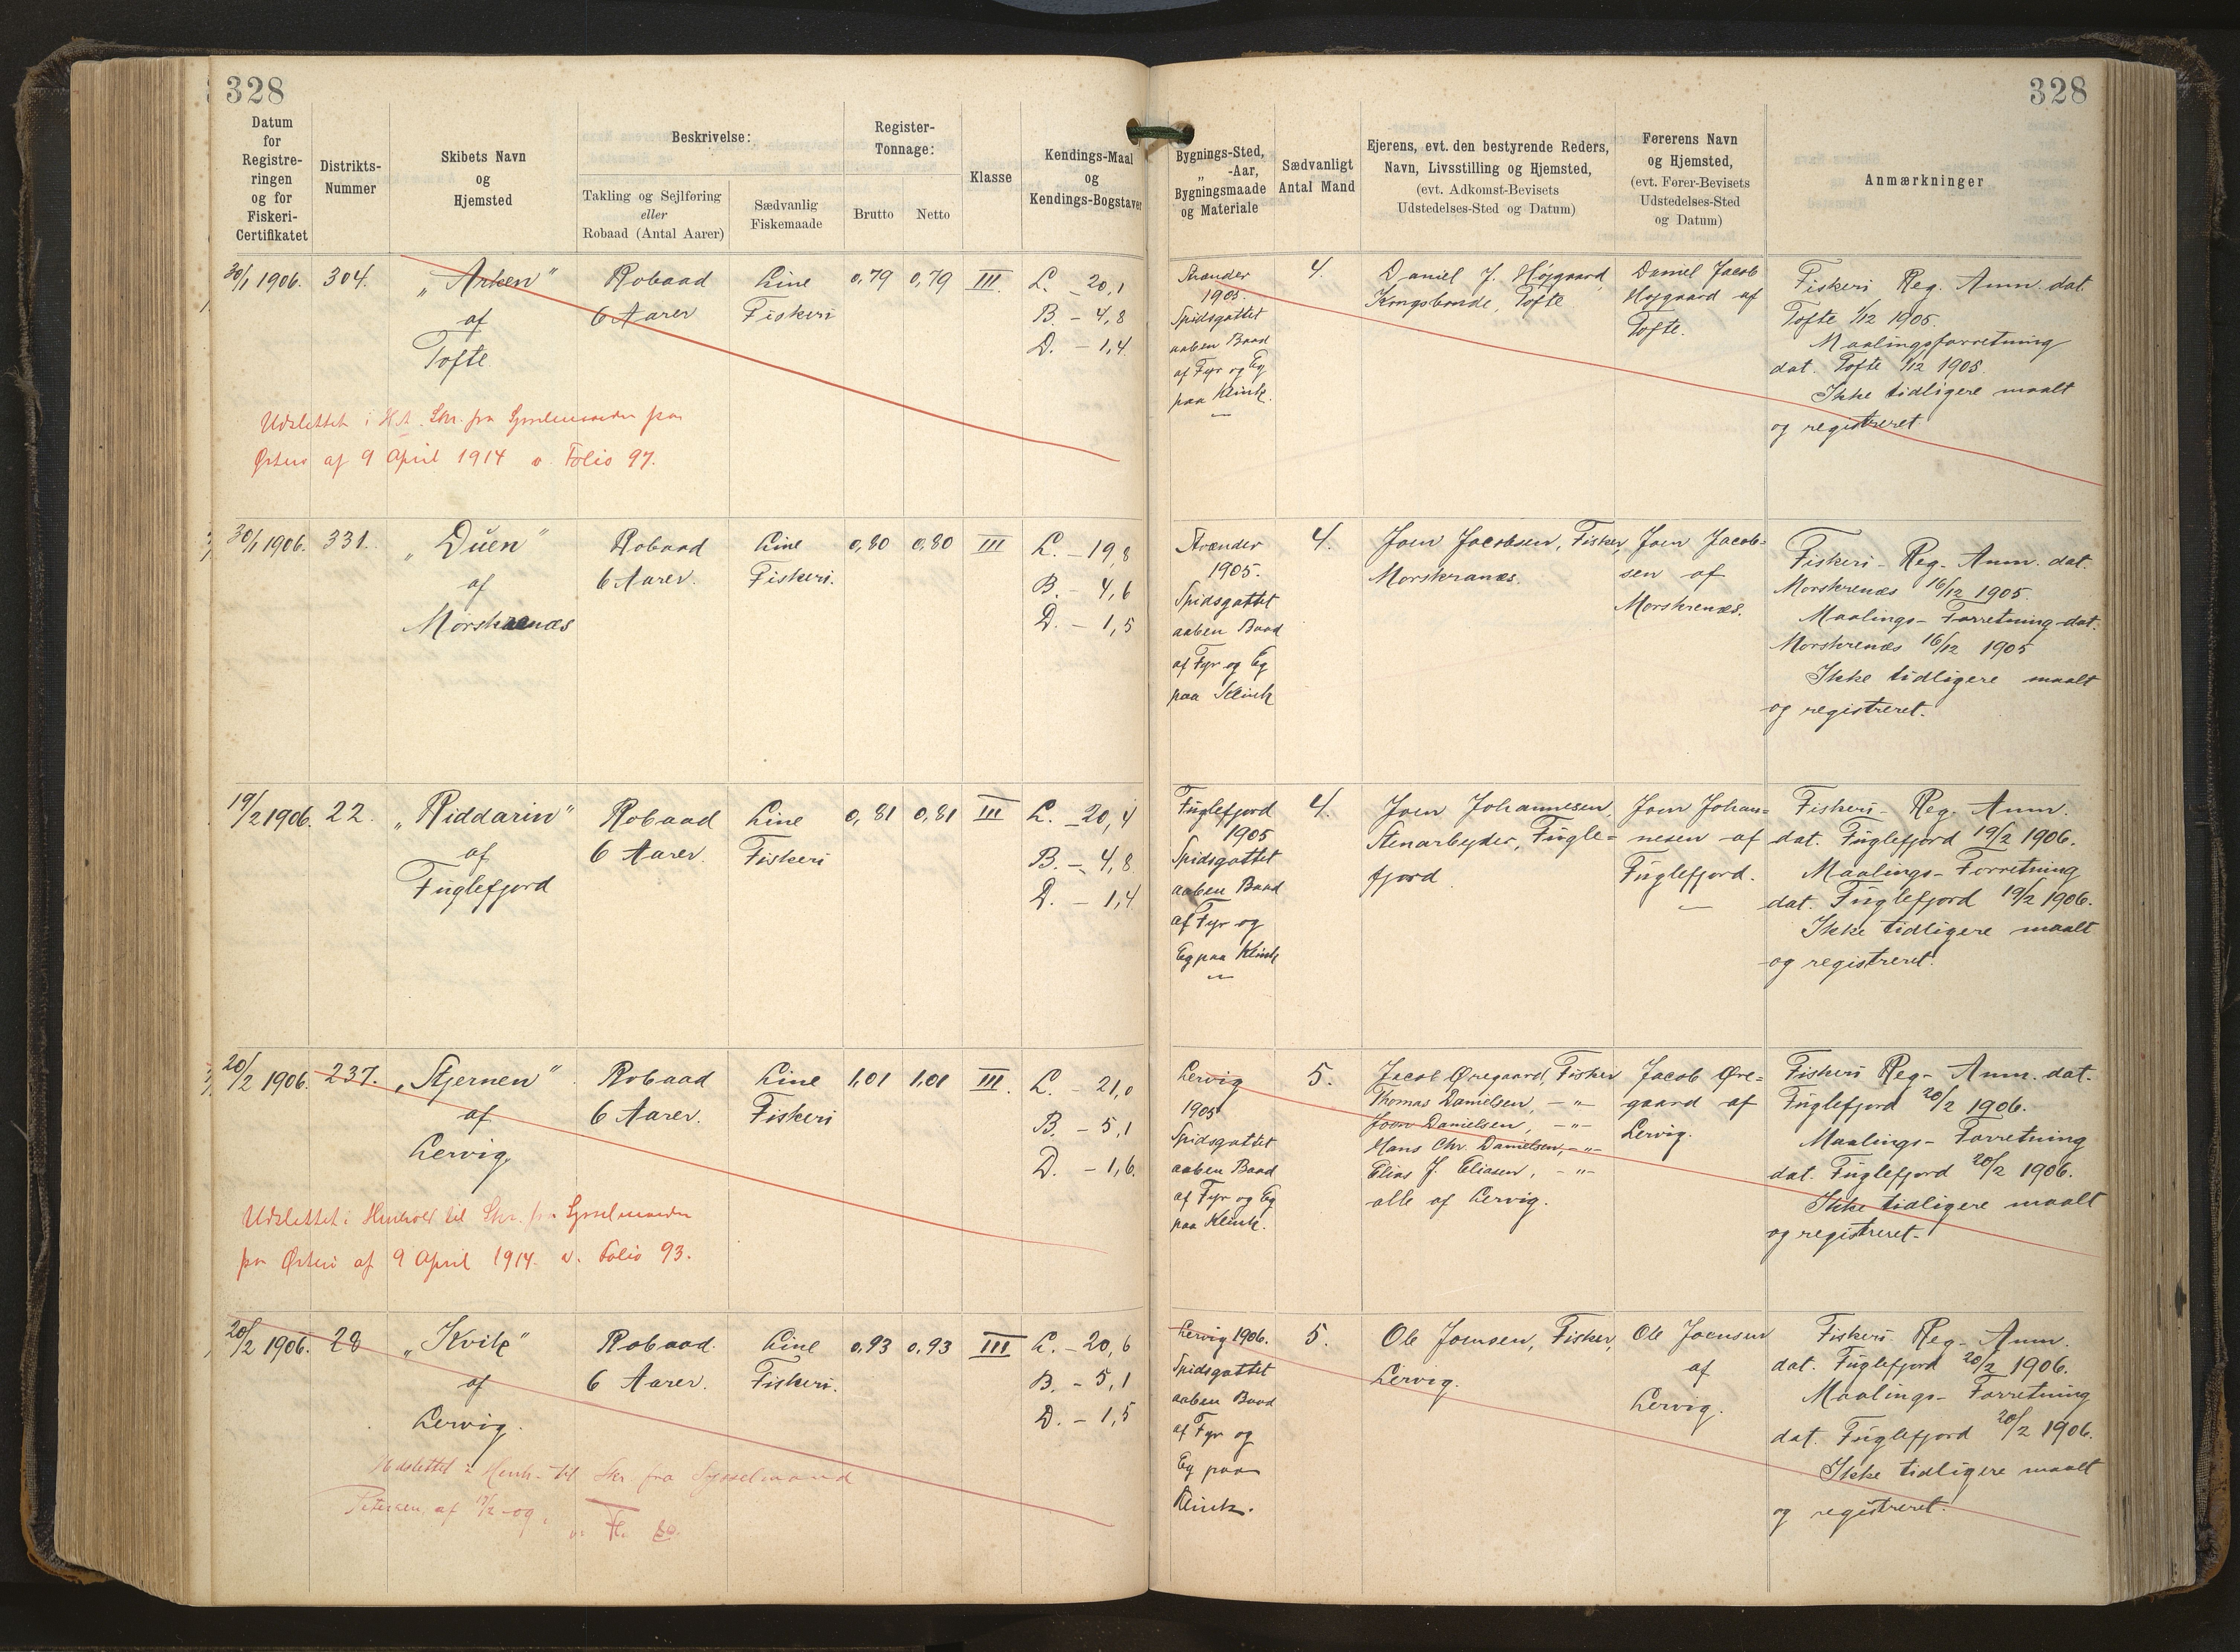 328
328
Datum
for
Registre-
ringen
og for
Fiskeri-
Certifikatet
Distrikts-
Nummer
Skibets Navn
og
Hjemsted
Beskrivelse:
Takling og Sejlføring
eller
Robaad (Antal Aarer)
Sædvanlig
Fiskemaade
Register-
Tonnage:
Brutto
Netto
Klasse
Kendings-Maal
og
Kendings-Bogstaver
Bygnings-Sted,
„ -Aar,
Bygningsmaade
og Materiale
Sædvanligt
Antal Mand
Ejerens, evt. den bestyrende Reders,
Navn, Livsstilling og Hjemsted,
(evt. Adkomst-Bevisets
Udstedelses-Sted og Datum)
Førerens Navn
og Hjemsted,
(evt. Fører-Bevisets
Udstedelses-Sted
og Datum)
Anmærkninger
30/1 1906.
304.
„Arken"
af
Tofte
Robaad
6 Aarer
Line
Fiskeri
0,79
0,79
III.
L. - 20,1
B. - 4,8
D. - 1,4
Strænder
1905.
Spidsgattet
aaben Baad
af Fyr og Eg
paa Klink.
4.
Daniel J. Højgaard,
Kongsbonde, Tofte
Daniel Jacob
Højgaard af
Tofte.
Fiskeri Reg. Anm. dat.
Tofte 1/12 1905.
Maalingsforretning
dat. Tofte 1/12 1905.
Ikke tidligere maalt
og registreret.
Udslettet i Skr. fra Sysselmanden paa
Østerø af 9 April 1914 v. Folio 97.
30/1 1906.
331.
„Duen"
af
Morskrenæs
Robaad
6 Aarer.
Line
Fiskeri.
0,80
0,80
III
L. - 19,8
B. - 4,6
D. - 1,5
Strænder
1905.
Spidsgattet
aaben Baad
af Fyr og Eg
paa Klink
4.
Joen Jacobsen, Fisker,
Morskranæs.
Joen Jacob-
sen af
Morskrenæs.
Fiskeri - Reg. Anm. dat.
Morskrenæs 16/12 1905.
Maalings - Forretning dat.
Morskrenæs 16/12 1905
Ikke tidligere maalt
og registreret.
19/2 1906.
22.
„Riddarin"
af
Fuglefjord
Robaad
6 Aarer.
Line
Fiskeri
0,81
0,81
III
L. - 20,4
B. - 4,8
D. - 1,4
Fuglefjord
1905
Spidsgattet
aaben Baad
af Fyr og
Eg paa Klink
4.
Joen Johannesen,
Stenarbejder, Fugle=
fjord.
Joen Johan=
nesen af
Fuglefjord.
Fiskeri - Reg. Anm.
dat. Fuglefjord 19/2 1906.
Maalings - Forretning
dat. Fuglefjord 19/2 1906.
Ikke tidligere maalt
og registreret.
20/2 1906.
237.
„Stjernen"
af
Lervig
Robaad
6 Aarer.
Line
Fiskeri
1,01
1,01
III.
L. - 21,0
B. - 5,1
D. - 1,6
Lervig
1905
Spidsgattet
aaben Baad
af Fyr og Eg
paa Klink.
5.
Jacob Øregaard, Fisker
Thomas Danielsen, - " -
Joen Danielsen, - " -
Hans Chr. Danielsen, - " -
Elias J. Eliasen, - " -
alle af Lervig.
Jacob Øre=
gaard af
Lervig.
Fiskeri Reg - Anm. dat.
Fuglefjord 20/2 1906.
Maalings - Forretning
dat. Fuglefjord 20/2 1906.
Ikke tidligere maalt
og registreret.
Udslettet i Henhold til Skr. fra Sysselmanden
paa Østerø af 9 April 1914. v. Folio 93.
20/2 1906.
28
„Kvik"
af
Lervig.
Robaad.
6 Aarer.
Line
Fiskeri.
0,93
0,93
III
L. - 20,6
B. - 5,1
D. - 1,5
Lervig 1906.
Spidsgattet
aaben Baad
af Fyr og
Eg paa
Klink.
5.
Ole Joensen, Fisker,
Lervig.
Ole Joensen
af
Lervig.
Fiskeri - Reg - Anm.
dat. Fuglefjord 20/2 1906.
Maalings - Forretning
dat. Fuglefjord 20/2 1906.
Ikke tidligere maalt
og registreret.
Udslettet i Henh. til Skr. fra Sysselmand
Petersen, af